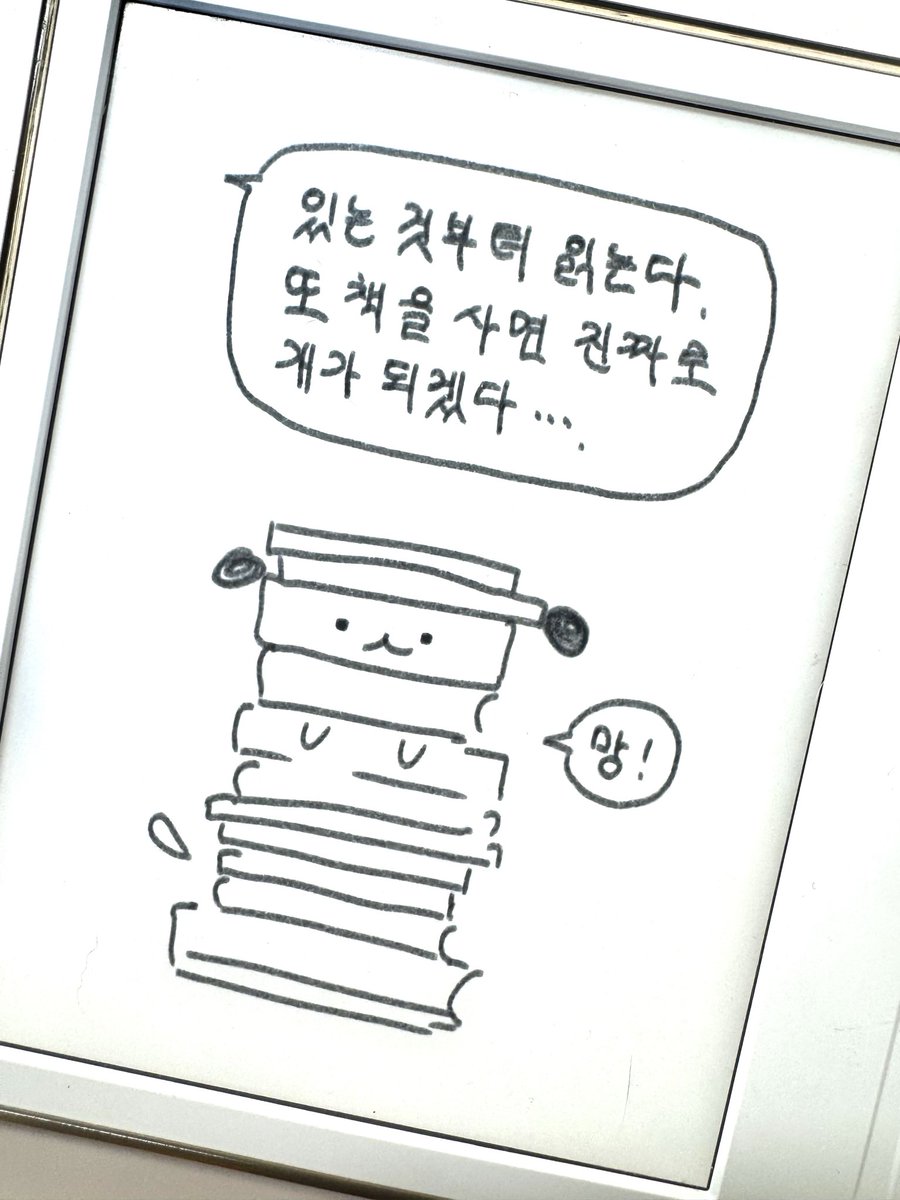 있는 것부터 읽는다.
또 책을 사면 진짜로
개가 되겠다....
망!